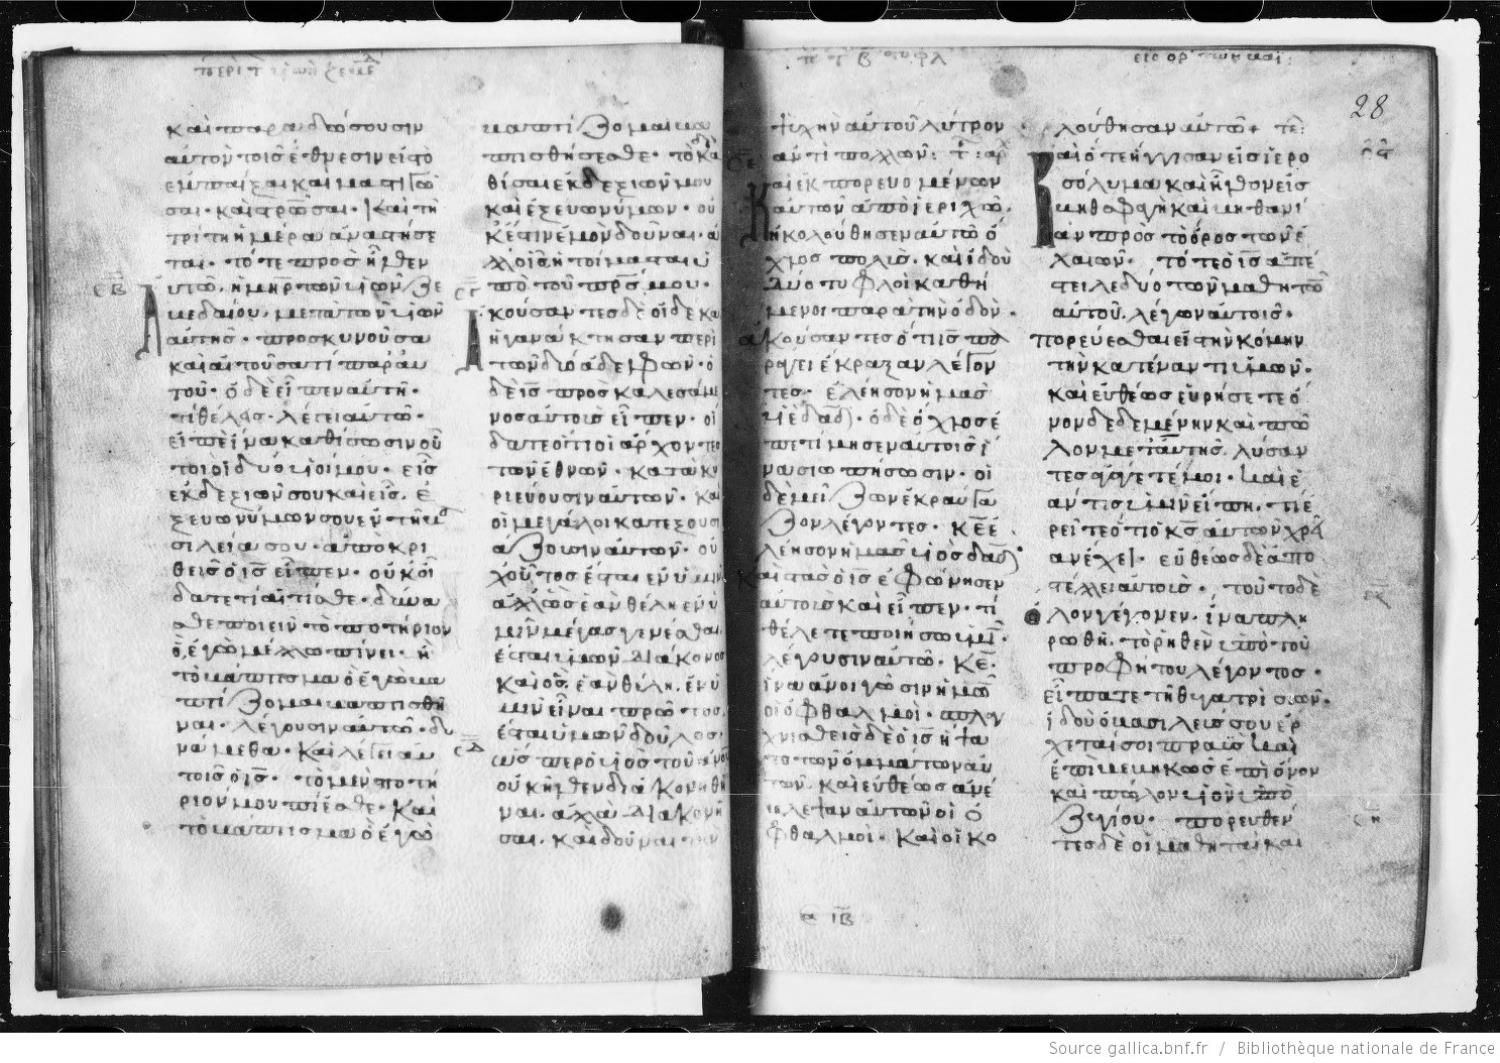 καὶ παραδώσουσιν
αὐτὸν τοῖς ἔθνεσιν εἰς τὸ
ἐμπαῖξαι καὶ μαστιγῶ
σαι· καὶ στρῶσαι· καὶ τῆ
τρίτη ἡμέρα ἀναστήσε
ται· τότε προσῆλθεν
αὐτῶ· ἡ μηρ τῶν υἱῶν Ζε
βεδαίου· μετὰ τῶν υἱῶν
αὐτῆς· προσκυνοῦσα
καὶ αἰτοῦσά τι παρ αὐ
τοῦ· ὁ δὲ εἶπεν αὐτῆ·
τί θέλεις· λέγει αὐτῶ·
εἰπὲ ἵνα καθίσωσιν οὗ
τοι οἱ δύο υἱοί μου· εἷς
ἐκ δεξιῶν σου καὶ εἷς· ἐ
ξ εὐωνύμων σου ἐν τῆ βα
σιλεία σου· ἀποκρι
θεὶς ὁ ις εἶπεν· οὐκ οἴ
δατε τί αἰτῖσθε· δύνα
σθε ποιεῖν τὸ ποτήριον
ὃ ἐγὼ μέλλω πίνει· ἢ
τὸ βάπτισμα ὃ ἐγὼ βα
πτίζομαι βαπτισθῆ
ναι· λέγουσιν αὐτῶ· δυ
νάμεθα· Καὶ λέγει αὐ
τοῖς ὁ ις· τὸ μὲν ποτή
ριόν μου πίεσθε· Καὶ
τὸ βάπτισμα ὃ ἐγὼ
βαπτίζομαι βα
πτισθήσεσθε· τὸ δὲ κα
θίσαι ἐκ δεξιῶν μου
καὶ ἐξ εὐωνύμων· οὐ
κ ἔστιν ἐμὸν δοῦναι· ἀ
λλ οἷς ἡτοίμασται ὑ
πὸ τοῦ πρς μου·
Ἀκούσαντες δὲ οἱ δέκα
ἠγανάκτησαν περὶ
τῶν δύο ἀδελφῶν· ὁ
δὲ ις προσκαλεσάμε
νος αὐτοὺς εἶπεν· οἴ
δατε ὅτι οἱ ἄρχοντες
τῶν ἐθνῶν· κατακυ
ριεύουσιν αὐτῶν· καὶ
οἱ μεγάλοι κατεξουσι
άζουσιν αὐτῶν· οὐ
χ οὕτος ἔσται ἐν ὑμῖν
ἀλλ ὡς ἐὰν θέλη ἐν ὑ
μῖν μέγας γενέσθαι
ἔσται ὑμῶν διάκονος
καὶ ὃς ἐὰν θέλη· ἐν ὑ
μῖν εἶναι πρῶτος·
ἔσται ὑμῶν δοῦλος·
ὥσπερ ὁ υἱὸς τοῦ ανου
οὐκ ἦλθεν διακονηθῆ
ναι· ἀλλὰ διακονῆ
σαι· καὶ δοῦναι τὴν
28
ψυχὴν αὐτοῦ λύτρον
ἀντὶ πολλῶν:
Καὶ ἐκπορευομένων
αὐτῶν ἀπὸ ἱεριχῶ·
ἠκολούθησεν αὐτῶ ὀ
χλος πολύς· καὶ ἰδοὺ
δύο τυφλοὶ καθή
μενοι παρὰ τὴν ὁδὸν·
ἀκούσαντες ὅτι ις πα
ράγει ἔκραξαν λέγον
τες· ἐλέησον ἡμᾶς
υἱὲ δαδ· ὁ δὲ ὄχλος ἐ
πετίμησεν αὐτοῖς ἵ
να σιωπήσωσιν· οἱ
δὲ μεῖζων ἐκραύγα
ζον λέγοντες· Κε ἐ
λέησον ἡμᾶς υἱὸς δαδ·
Καὶ στὰς ὁ ις ἐφώνησεν
αὐτοὺς καὶ εἶπεν· τί
θέλετε ποιήσω ὑμῖν·
λέγουσιν αὐτῶ· Κε·
ἵνα ἀνοιγῶσιν ἡμῶν
οἱ ὀφθαλμοί· σπλαγ
χνισθεὶς δὲ ὁ ις ἥψα
το τῶν ὀμμάτων αὐ
τῶν· καὶ εὐθέως ἀνέ
βλεψαν αὐτῶν οἱ ὀ
φθαλμοί· Καὶ οἰκο
λούθησαν αὐτῶ·
Καὶ ὅτε ἤγγισαν εἰς ἱερο
σόλυμα καὶ ἦλθον εἰς
βηθσφαγῆ καὶ βηθανί
αν πρὸς τὸ ὄρος τῶν ἐ
λαιῶν· τότε ὁ ις ἀπέ
στειλε δύο τῶν μαθητῶν
αὐτοῦ· λέγων αὐτοῖς·
πορεύεσθαι εἰς τὴν κόμην
τὴν κατέναντι ὑμῶν·
καὶ εὐθέως εὑρήσετε ὄ
νον δεδεμένην καὶ πῶ
λον μετ αὐτῆς· λύσαν
τες ἀγάγετέ μοι· καὶ ἐ
άν τις ὑμῖν εἴπη· τί ἐ
ρεῖτε ὅτι ὁ κς αὐτῶν χρεί
αν ἔχει· εὐθέως δὲ ἀπο
στέλει αὐτούς· τοῦτο δὲ
ὅλον γέγονεν· ἵνα πλη
ρωθῆ· τὸ ῥηθὲν ὑπὸ τοῦ
προφήτου λέγοντος·
εἴπατε τῆ θυγατρὶ σιών·
ἰδοὺ ὁ βασιλεύς σου ἔρ
χεταί σοι πραὺς καὶ
ἐπιβεβηκὼς ἐπὶ ὄνον
καὶ πῶλον υἱὸν ὑπο
ζυγίου· πορευθέν
τες δὲ οἱ μαθηταὶ καὶ
ιβ
Source gallica.bnf.fr / Bibliothèque nationale de France